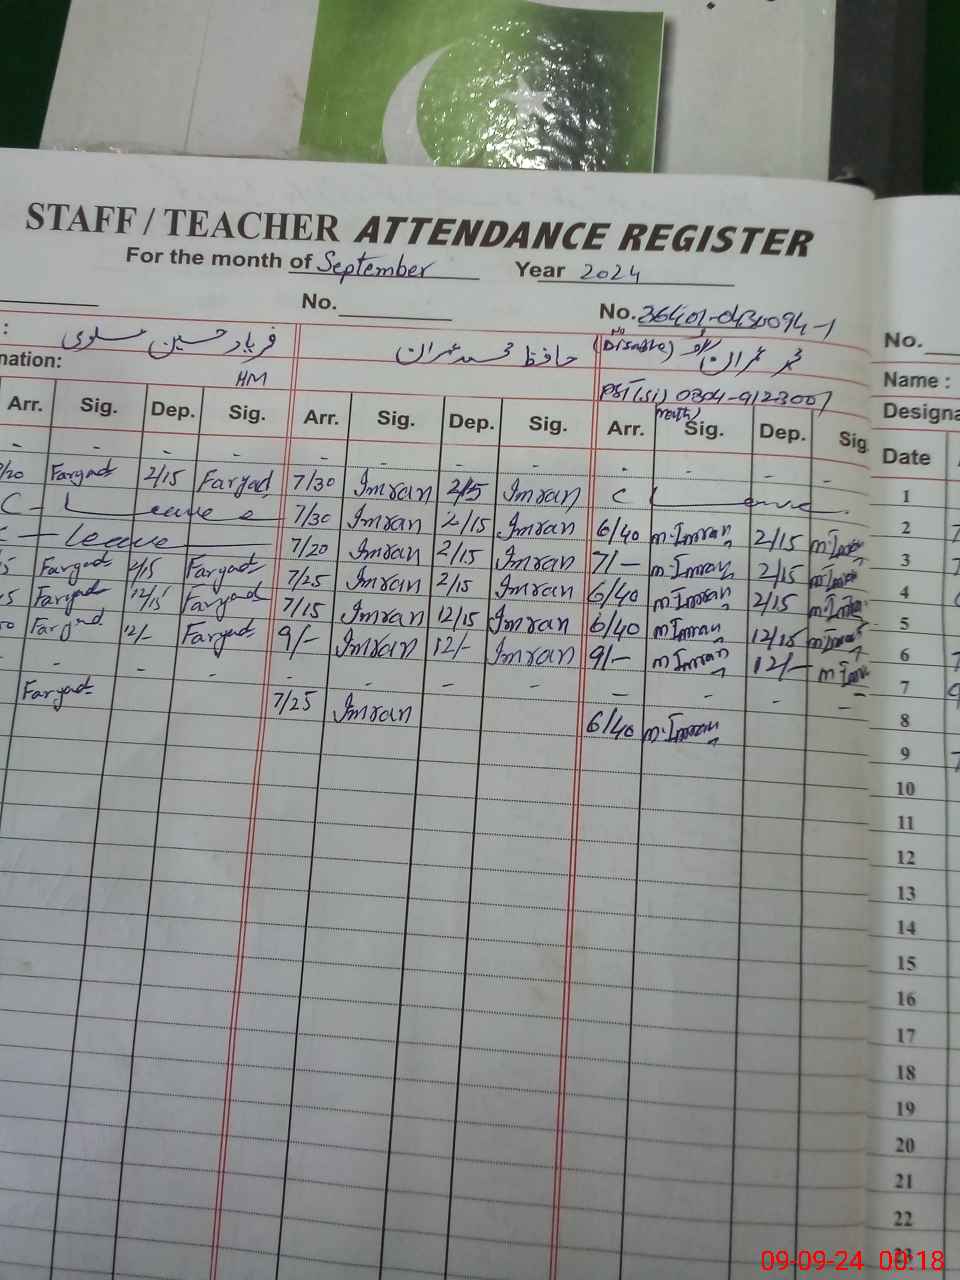 STAFF / TEACHER ATTENDANCE REGISTER
For the month of September Year 2024
No. No. 36401-0430094-1 No.
: فریاد حسین حافظ محمد عمران (Disable) محمد عمران Name :
nation: HM PST (Si) 0304-9123007 Designa
Arr. Sig. Dep. Sig. Arr. Sig. Dep. Sig. Arr. Sig. Dep. Sig Date
- - - - - - - - - - - - 1
/20 Faryad 2/15 Faryad 7/30 Imran 2/15 Imran C Leave 2
C - Leave 7/30 Imran 2/15 Imran 6/40 m.Imran 2/15 m.Imran 3
C - leave 7/20 Imran 2/15 Imran 7/- m.Imran 2/15 m.Imran 4
5 Faryad 2/15 Faryad 7/25 Imran 2/15 Imran 6/40 m.Imran 2/15 m.Imran 5
5 Faryad 12/15 Faryad 7/15 Imran 12/15 Imran 6/40 m Imran 12/15 m Imran 6
00 Faryad 12/- Faryad 9/- Imran 12/- Imran 9/- m Imran 12/- m Imran 7
- - - - - - - - - - - 8
Faryad 7/25 Imran 6/40 m.Imran 9
10
11
12
13
14
15
16
17
18
19
20
21
22
23
09-09-24 00:18